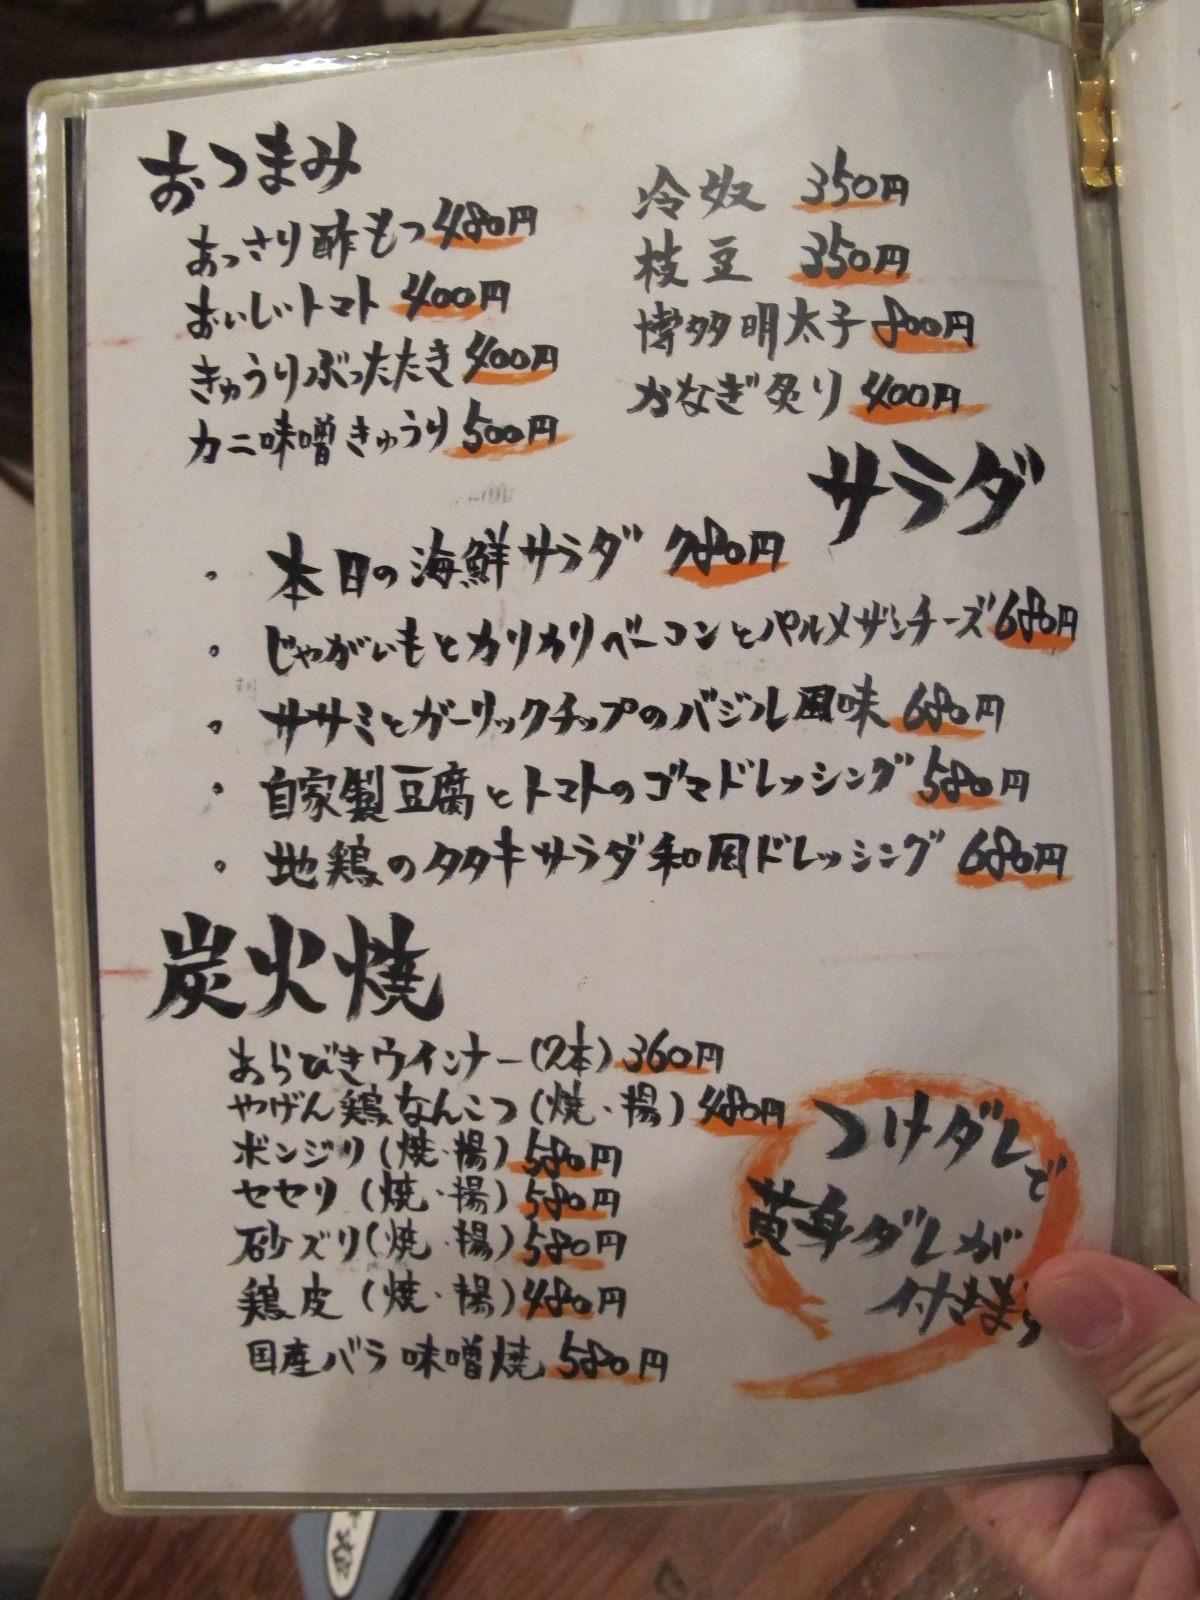 おつまみ
あっさり酢もつ480円
おいしいトマト 400円
きゅうりぶったたき400円
カニ味噌きゅうり500円
冷奴 350円
枝豆 350円
博多明太子800円
おなぎ炙り 400円
サラダ
・本日の海鮮サラダ 780円
・じゃがいもとカリカリベーコンとパルメザンチーズ680円
・ササミとガーリックチップのバジル風味 680円
・自家製豆腐とトマトのゴマドレッシング580円
・地鶏のタタキサラダ和風ドレッシング 680円
炭火焼
あらびきウインナー(2本)360円
やげん鶏なんこつ(焼・揚)480円
ボンジリ(焼・揚)580円
セセリ(焼・揚)580円
砂ズリ(焼・揚)580円
鶏皮(焼・揚)480円
国産バラ味噌焼 580円
つけダレで
黄身ダレが
付きます